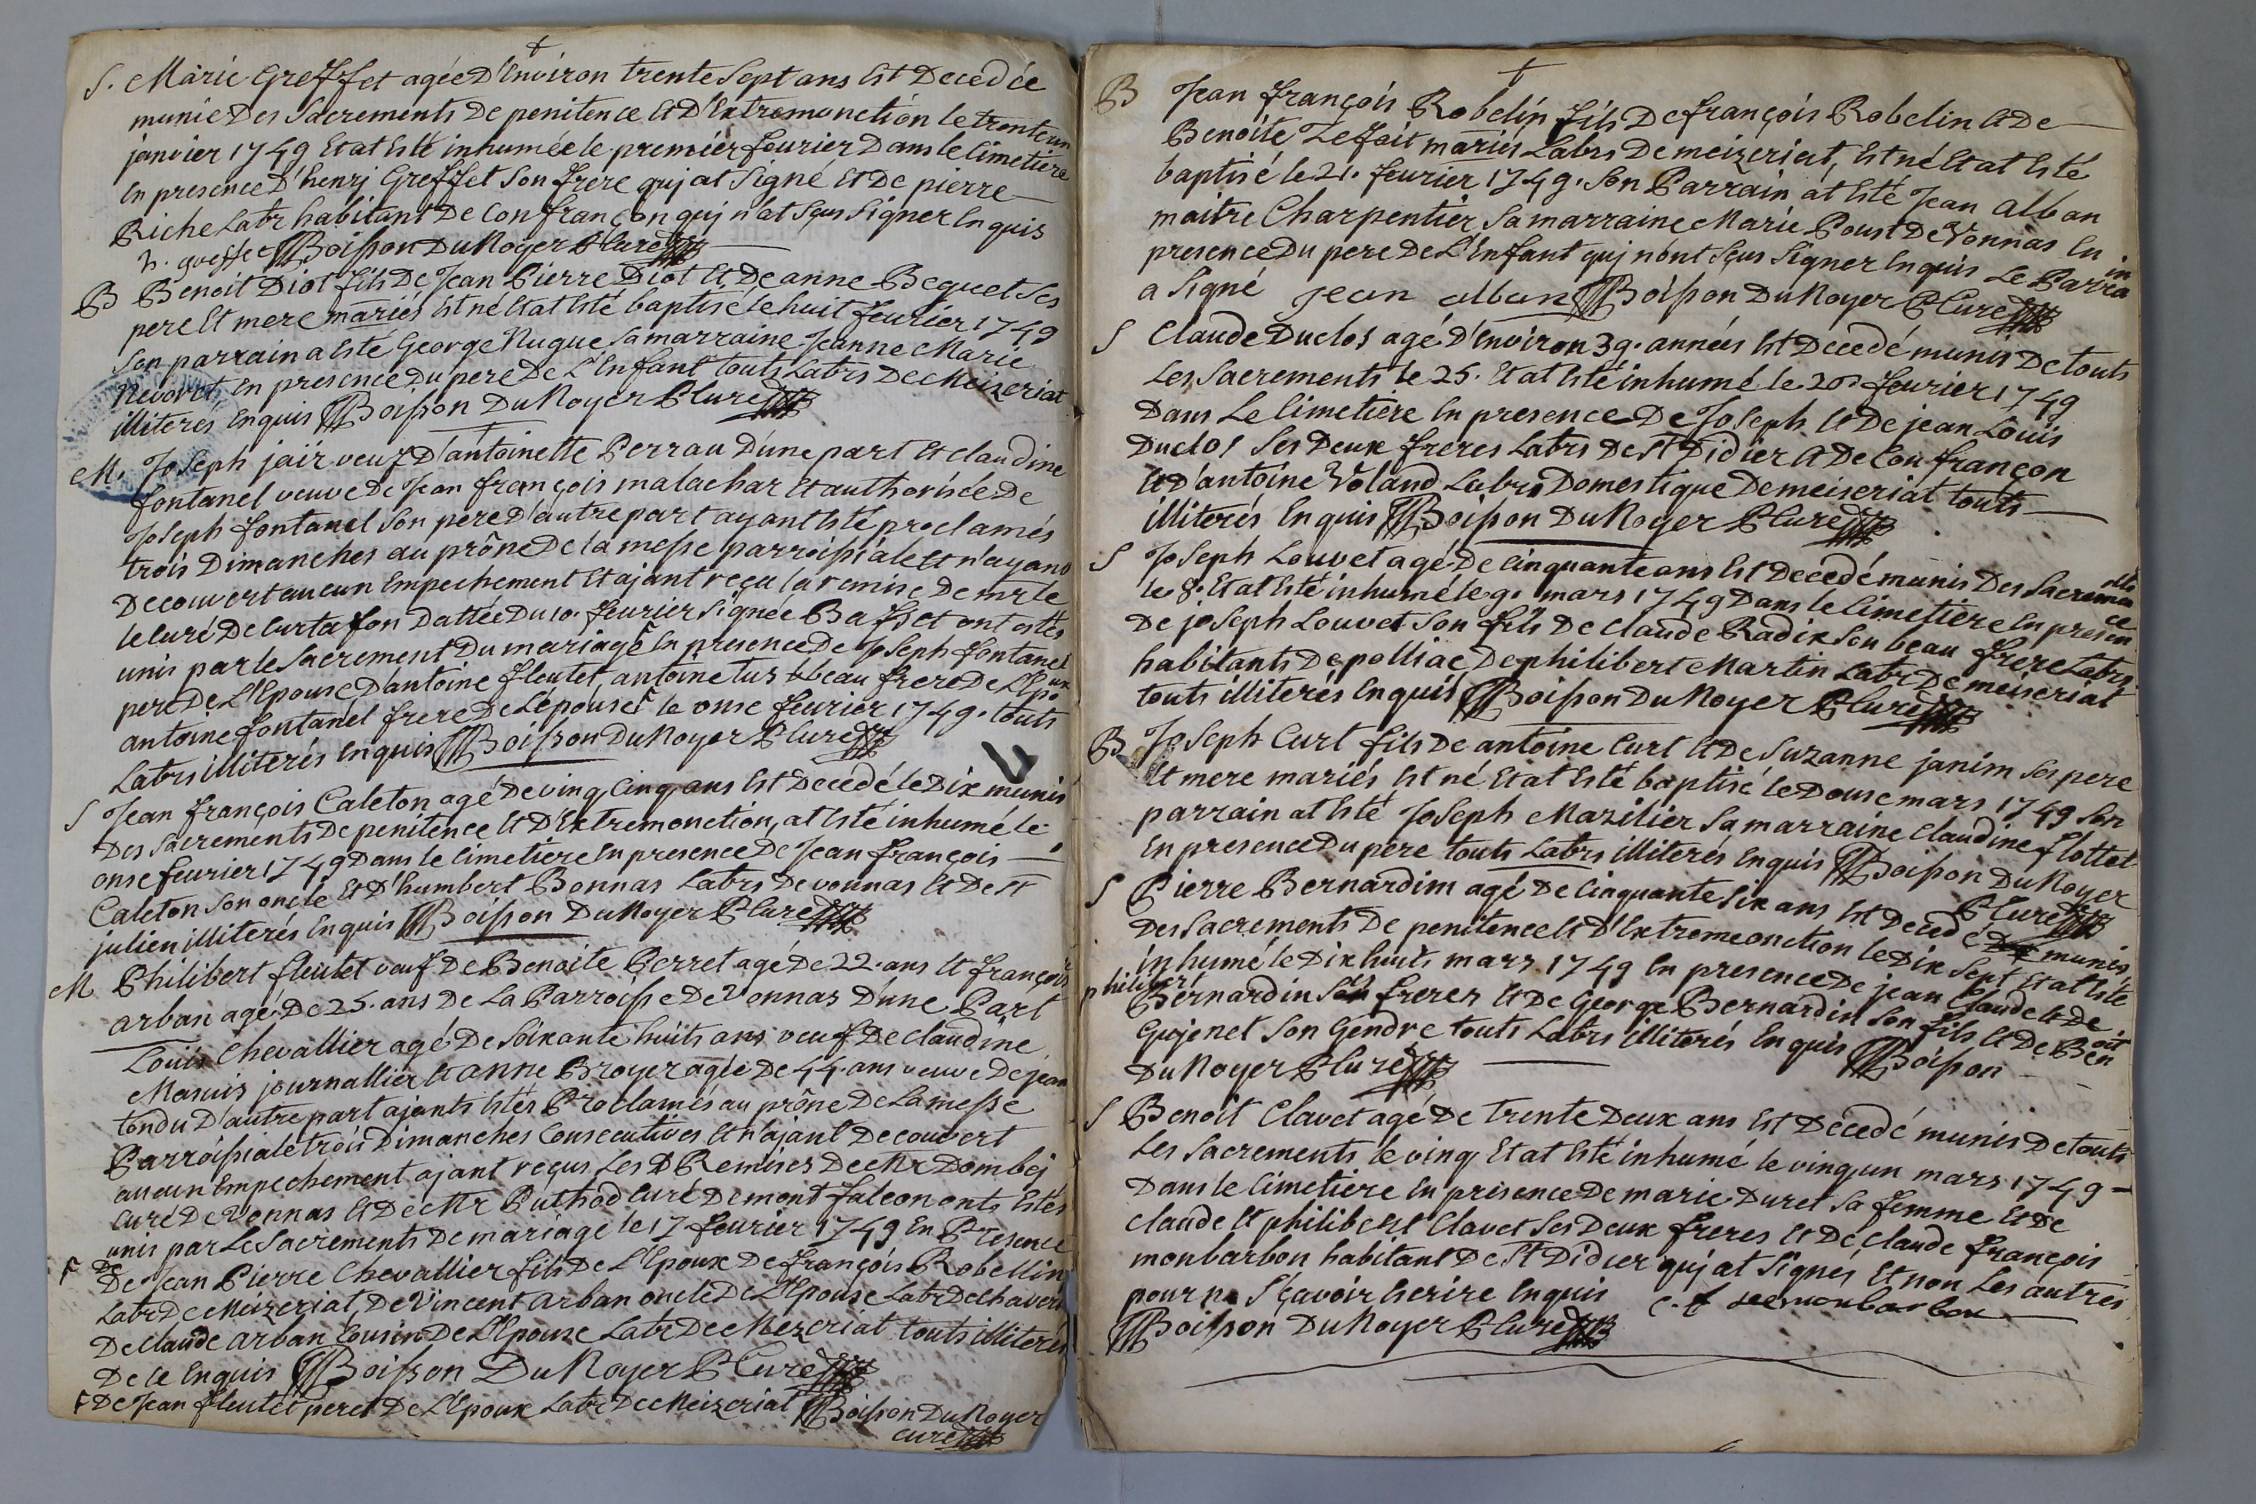 S. Marie Greffet agée D'Environ trente Sept ans Est Decedée
munie Des Sacrements De penitence Et D'Extremonction le trenteun
janvier 1749 Et at Esté inhumée le premiér fevrier Dans le Cimetiere
En presence D'henrj Greffet Son frere quj at Signé Et De pierre
Riche Labr habitant De Confrançon quj n'at Sçus Signer Enquis
h. greffet Boisson DuNoyer Curé
B Benoit Diot fils De Jean Pierre Diot Et De anne Bequet Ses
pere Et mere mariés Est né Et at Esté baptisé le huit fevrier 1749
Son parrain a Esté George Nugue Sa marraine Jeanne Marie
Nevoret En presence Du pere De L'Enfant touts Labrs De Meizeriat
illiterés Enquis Boisson DuNoyer Curé
M. Joseph jaïr veuf D'antoinette Perrau D'une part Et claudine
fontanel veuve De Jean françois malachar Et authorisée De
Joseph fontanel Son pere D'autre part ayant Esté proclamés
trois Dimanches au prône De la messe parroissiale Et n'ayant
Decouvert aucun Empechement Et ajant reçu la remise De mr le
le curé De Curtafon Dattée Du 10. fevrier Signée Baffet ont estés
unis par le Sacrement Du mariage En presence De Joseph fontanel
pere De L'Epouse D'antoine fleutet, antoine tur beau frere De L'Epoux
antoine fontanel frere De L'épouse le onse fevrier 1749. touts
Labrs illiterés Enquis Boisson DuNoyer Curé
S Jean françois Caleton agé De vinq Cinq ans Est Decedé le Dix munis
Des Sacrements De penitence Et D'Extremonction, at Esté inhumé le
onse fevrier 1749 Dans le Cimetiere En presence De Jean françois
Caleton Son oncle Et D'humbert Bonnas Labrs De vonnas Et De St
julien illiterés Enquis Boisson DuNoyer Curé
M Philibert fleutet veuf De Benoite Perret agé De 22. ans Et françoise
arban agé De 25. ans De La Parroisse De Vonnas D'une Part
Loüis Chevallier agé De Soixante huits ans veuf De claudine
Manuis journallier Et anne Broyer agée De 44. ans veuve De jean
tondu D'autre part ajants Estés Proclamés au prône De La messe
Parroissiale trois Dimanches Consecutives Et n'ajant Decouvert
aucun Empechement ajant reçus Les Remises De Mr Dombej
Curé De Vonnas Et De Mr Puthod Curé De montfalcon onts Estés
unis par Le Sacrements De mariage le 17 fevrier 1749 En Presence
De Jean Pierre Chevallier fils De L'Epoux De françois Robellin
Labr De Meizeriat, De Vincent arban oncle De L'Epouse Labr De chaveri
De claude arban Cousin De L'Epouse Labr De Mezeriat touts illiterés
De Ce Enquis Boisson DuNoyer Curé
De Jean fleutet pere De L'Epoux Labr De Meizeriat Boisson DuNoyer
curé
B Jean françois Robelin fils De françois Robelin Et De
Benoite Tefait mariés Labrs De meizeriat, Est né Et at Esté
baptisé le 21. fevrier 1749. Son Parrain at Esté Jean alban
maitre Charpentier Sa marraine Marie Poust De Vonnas En
presence Du pere De L'Enfant quj n'ont Sçus Signer Enquis Le Parrain
a Signé jean alban Boisson DuNoyer Curé
S Claude Duclos agé D'Environ 39. années Est Decedé munis De touts
Les Sacrements le 25. Et at Esté inhumé le 26 fevrier 1749
Dans Le Cimetiere En presence De Joseph Et De jean Louis
Duclos Ses Deux freres Labrs De St Didier Et De Confrançon
Et D'antoine Voland Labrs Domestique De meiseriat touts
illiterés Enquis Boisson DuNoyer Curé
S Joseph Louvet agé De Cinquante ans Est Decedé munis Des Sacrements
le 8. Et at Esté inhumé le 9. mars 1749 Dans le Cimetiere En presence
De joseph Louvet Son fils De claude Radix Son beau frere Labrs
habitants De polliac De philibert Martin Labr De meiseriat
touts illiterés Enquis Boisson DuNoyer Curé
B Joseph Curt fils De antoine Curt Et De Suzanne janim Ses pere
Et mere mariés Est né Et at Esté baptisé le Douse mars 1749 Son
parrain at Esté Joseph Mazilier Sa marraine claudine flottet
En presence Du pere touts Labrs illiterés Enquis Boisson DuNoyer
Curé
S Pierre Bernardim agé De Cinquante Six ans Est Decedé munis
Des Sacrements De penitence Et D'Extremeonction le Dix Sept Et at Esté
inhumé le Dix huit mars 1749 En presence De jean Claude Et De
philibert Bernardin Ses freres Et De George Bernardin Son fils Et De Benoit
Gujenet Son Gendre touts Labrs illiterés Enquis Boisson
DuNoyer Curé
S Benoit Clavet agé De trente Deux ans Est Decedé munis De touts
Les Sacrements le vinq Et at Esté inhumé le vinqun mars 1749
Dans le Cimetiere En presence De marie Duret Sa femme Et De
claude Et philibert Clavet Ses Deux freres Et De claude françois
monbarbon habitant De St Didier quj at Signés Et non Les autres
pour ne Sçavoir Escrire Enquis c. f demonbarbon
Boisson DuNoyer Curé